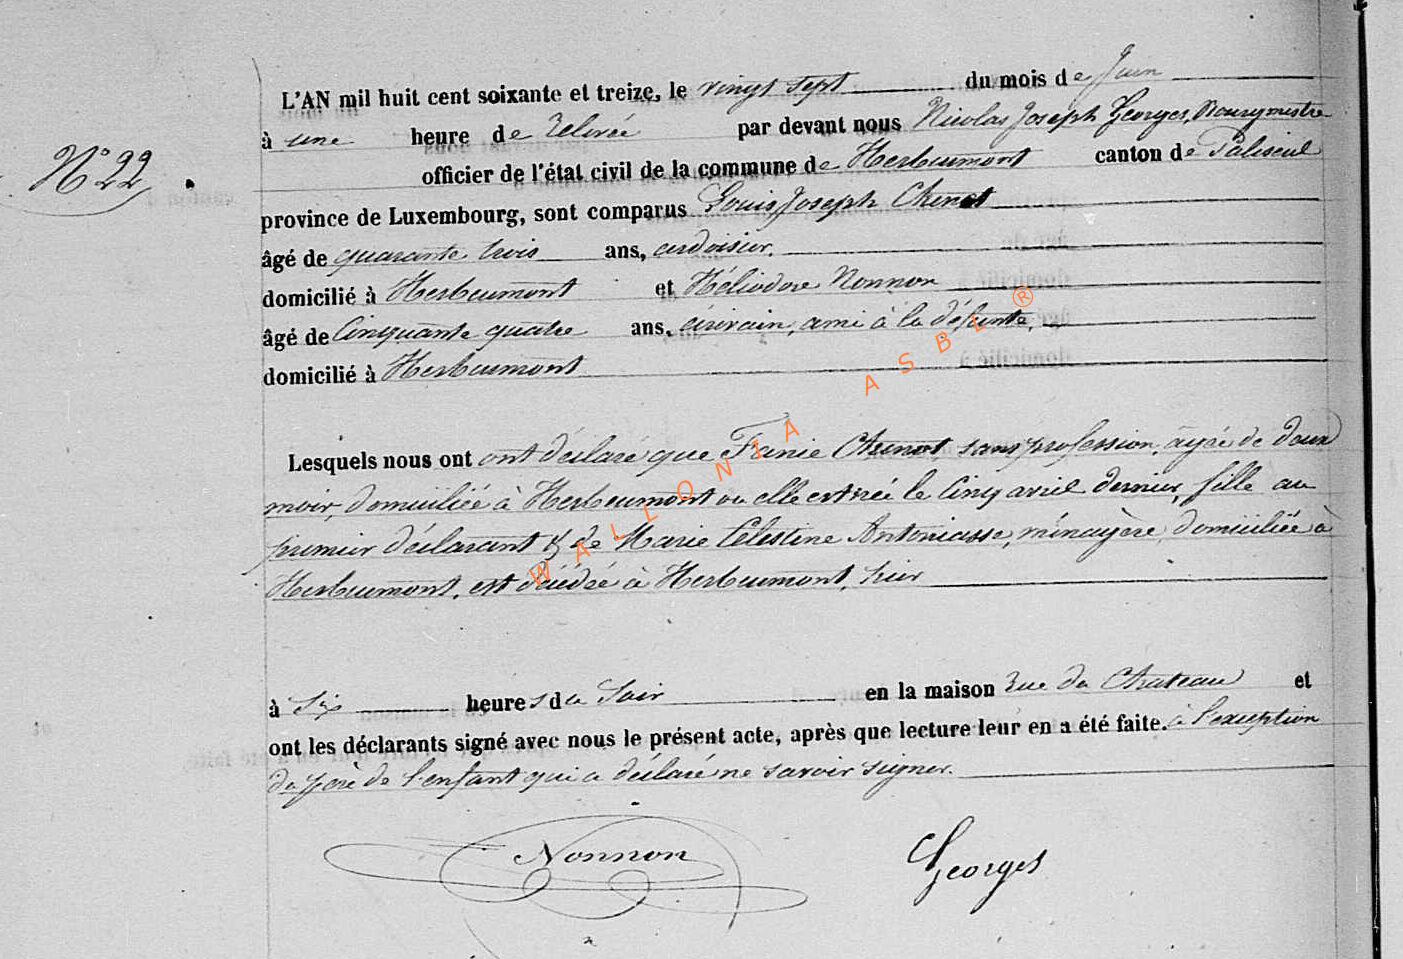 L'AN mil huit cent soixante et treize, le vingt sept du mois de Juin
à une heure de Relevée par devant nous Nicolas Joseph Georges, Bourgmestre
N° 22
officier de l'état civil de la commune de Herbeumont canton de Paliseul
province de Luxembourg, sont comparus Louis Joseph Chenot
âgé de quarante trois ans, ardoisier,
domicilié à Herbeumont et Héliodore Nonnon
âgé de Cinquante quatre ans, écrivain, ami à la défunte,
domicilié à Herbeumont
Lesquels nous ont ont déclaré que Fanie Chenot, sans profession, âgée de deux
mois, domiciliée à Herbeumont ou elle est née le Cinq avril dernier, fille au
premier déclarant & de Marie Célestine Antoniasse, ménagère, domiciliée à
Herbeumont, est décédée à Herbeumont, hier
à Six heures du Soir en la maison Rue du Chateau et
ont les déclarants signé avec nous le présent acte, après que lecture leur en a été faite. à l'exception
du père de l'enfant qui a déclaré ne savoir signer.
Nonnon Georges
WALLONIA ASBL ®